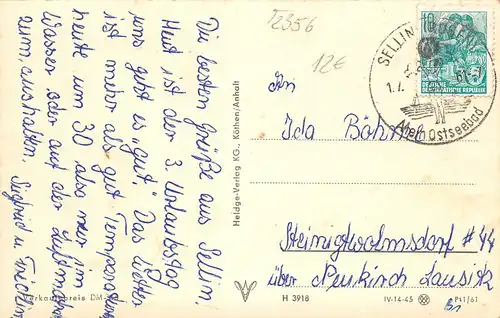 Die besten Grüße aus Sellin.
Heut ist der 3. Urlaubstag
uns geht es "gut". Das Wetter
ist mehr als gut Temperatur
heute um 30 also nur im
Wasser oder auf der Luftmatr.
zum aushalten. Siegfried u.
Verkaufspreis DM
Heldge-Verlag KG., Köthen/Anhalt
T2356
12€
SELLIN
1.7.
Ostseebad
10
DEUTSCHE
DEMOKRATISCHE REPUBLIK
An
Ida Böhme
Steinigtwolmsdorf #44
über Neukirch Lausitz
H 3918
IV-14-45
P 1/61